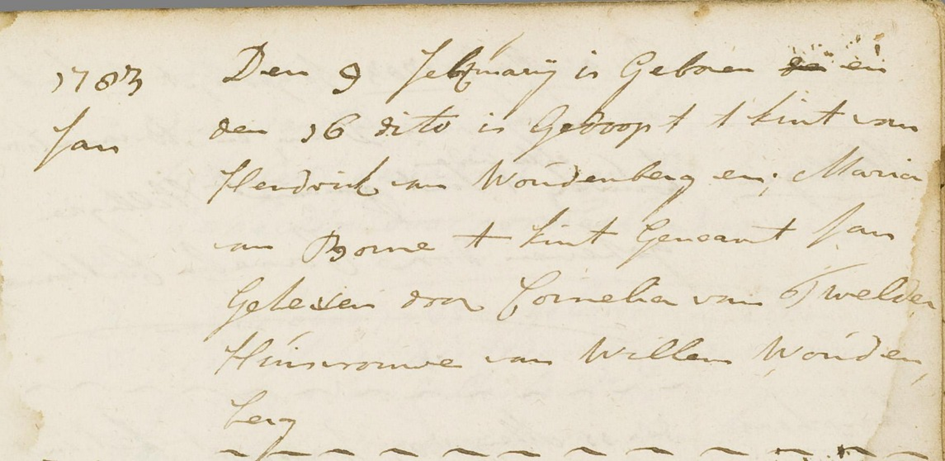 1783 Den 9 Februarij is Geboren en
Jan den 16 dito is Gedoopt t kint van
Hendrick van Woudenberg en; Maria
van Borne t kint Genaant Jan
Geheven door Cornelia van
Huisvrouwe van Willem Wouden
berg